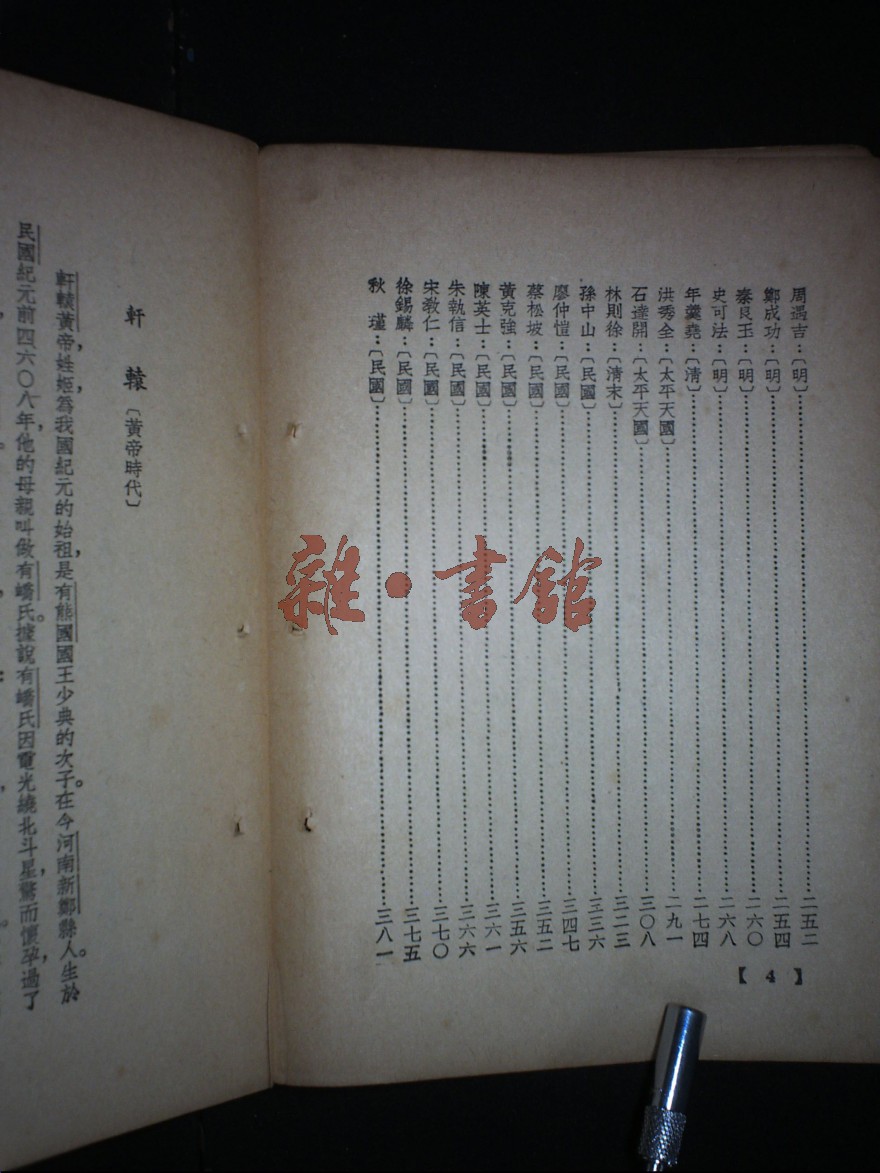 周遇吉：〔明〕……二五二
鄭成功：〔明〕……二五四
秦良玉：〔明〕……二六〇
史可法：〔明〕……二六八
年羹堯：〔清〕……二七四
洪秀全：〔太平天國〕……二九一
石達開：〔太平天國〕……三〇八
林則徐：〔清末〕……三二三
孫中山：〔民國〕……三三六
廖仲愷：〔民國〕……三四七
蔡松坡：〔民國〕……三五二
黃克強：〔民國〕……三五六
陳英士：〔民國〕……三六一
朱執信：〔民國〕……三六六
宋教仁：〔民國〕……三七〇
徐錫麟：〔民國〕……三七五
秋　瑾：〔民國〕……三八一
【4】
軒　轅〔黃帝時代〕
軒轅黃帝，姓姬，爲我國紀元的始祖，是有熊國國王少典的次子。在今河南新鄭縣人。生於
民國紀元前四六〇八年，他的母親叫做有蟜氏。據說有蟜氏因電光繞北斗星，驚而懷孕，過了
雜·書館